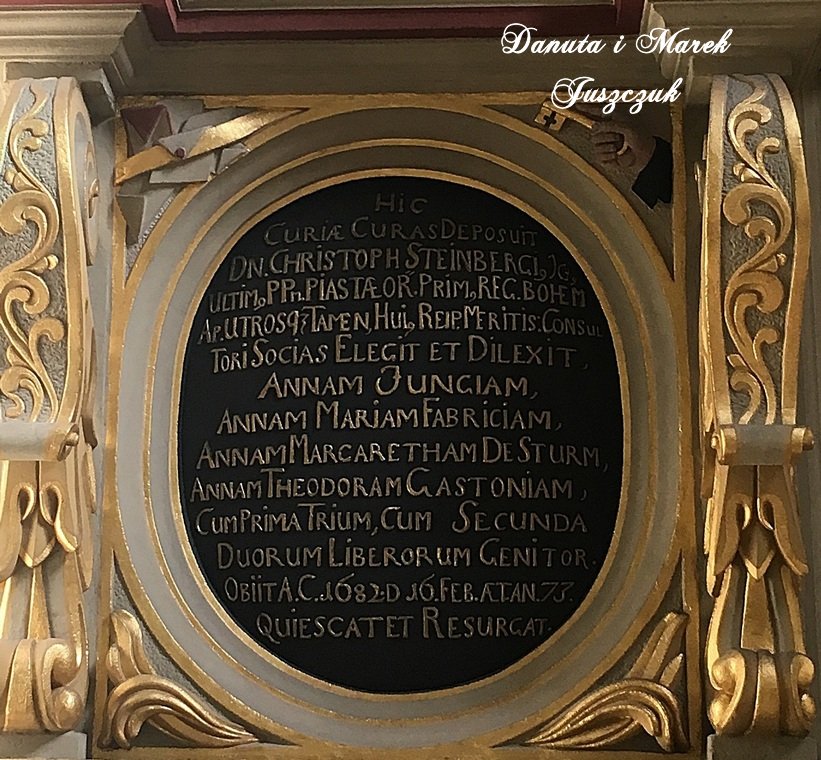 Danuta i Marek
Juszczuk
HIC
CURIÆ CURAS DEPOSUIT
DN. CHRISTOPH STEINBERGI, IG,
ULTIM, PPN. PIASTÆ OR. PRIM, REG. BOHEM
AP. UTROSQ; TAMEN, HUI, REIP. MERITIS: CONSUL
TORI SOCIAS ELEGIT ET DILEXIT,
ANNAM JUNGIAM,
ANNAM MARIAM FABRICIAM,
ANNAM MARGARETHAM DE STURM,
ANNAM THEODORAM GASTONIAM,
CUM PRIMA TRIUM, CUM SECUNDA
DUORUM LIBERORUM GENITOR.
OBIIT A.C. 1682 D 16. FEB. ÆTAN. 73.
QUIESCAT ET RESURGAT.